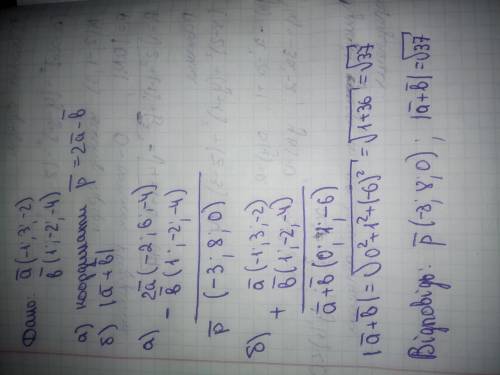 Дано: a̅ (-1; 3; -2)
b̅ (1; -2; -4)
а) координати p̅ = 2a̅ - b̅
б) |a̅ + b̅|
а) - 2a̅ (-2; 6; -4)
b̅ (1; -2; -4)
p̅ (-3; 8; 0)
б) + a̅ (-1; 3; -2)
b̅ (1; -2; -4)
a̅+b̅ (0; 1; -6)
|a̅+b̅| = √0²+1²+(-6)² = √1+36 = √37
Відповідь: p̅ (-3; 8; 0); |a̅+b̅| = √37